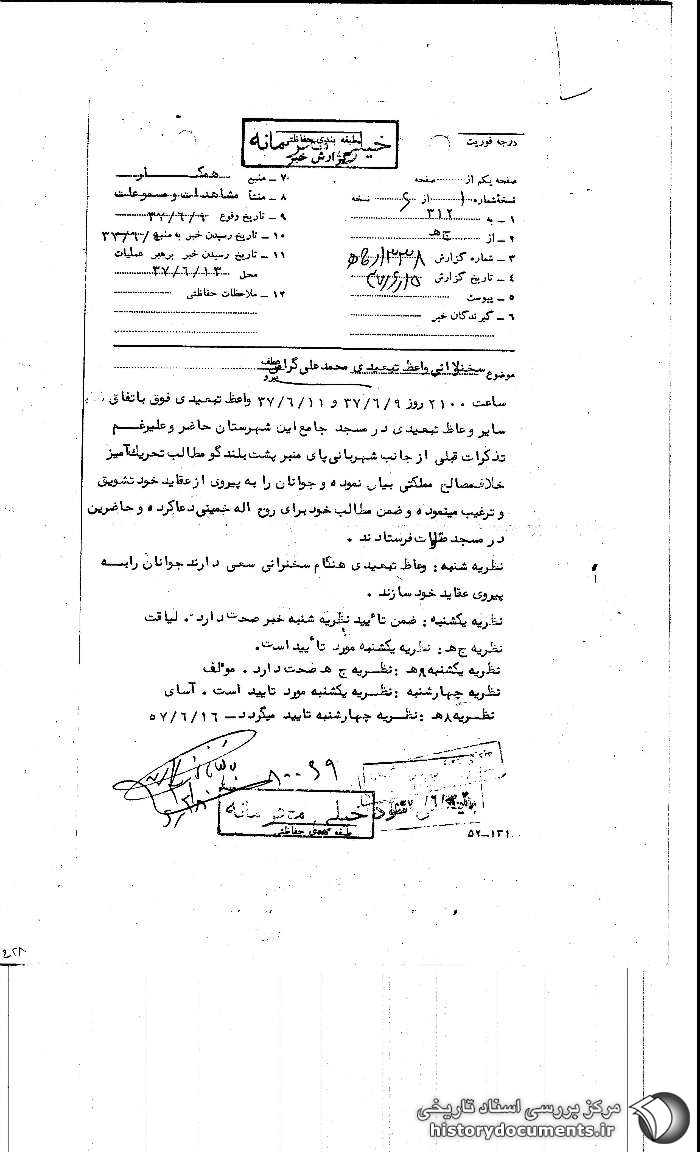 درجه فوریت
خیلی محرمانه
طبقه بندی حفاظتی
گزارش خبر
صفحه یکم از صفحه
نسخه شماره ۱ از ۶ نسخه
۱ – به ۳۱۲
۲ – از ج ه‍
۳ – شماره گزارش
۴ – تاریخ گزارش
۵ – پیوست
۶ – گیرندگان خبر
۷ – منبع همکار
۸ – منشأ مشاهدات و مسموعات
۹ – تاریخ وقوع ۳۷/۶/۹
۱۰ – تاریخ رسیدن خبر به منبع ۳۷/۶/۹
۱۱ – تاریخ رسیدن خبر برهبر عملیات
محل ۳۷/۶/۱۳
۱۲ – ملاحظات حفاظتی
موضوع سخنرانی واعظ تبعیدی محمد علی گرامی
پیرو
ساعت ۲۱۰۰ روز ۳۷/۶/۹ و ۳۷/۶/۱۱ واعظ تبعیدی فوق باتفاق
سایر وعاظ تبعیدی در مسجد جامع این شهرستان حاضر و علیرغم
تذکرات قبلی از جانب شهربانی پای منبر پشت بلند گو مطالب تحریک آمیز
خلاف مصالح مملکتی بیان نموده و جوانان را به پیروی از عقاید خود تشویق
و ترغیب مینموده و ضمن مطالب خود برای روح اله خمینی دعا کرده و حاضرین
در مسجد صلوات فرستادند .
نظریه شنبه : وعاظ تبعیدی هنگام سخنرانی سعی دارند جوانان را به
پیروی عقاید خود سازند .
نظریه یکشنبه : ضمن تأیید نظریه شنبه خبر صحت دارد . لیاقت
نظریه ج ه‍ : نظریه یکشنبه مورد تأیید است.
نظریه یکشنبه ۸ ه‍ : نظریه ج ه‍ صحت دارد . موئلف
نظریه چهارشنبه : نظریه یکشنبه مورد تایید است . آسای
نظریه ۸ ه‍ : نظریه چهارشنبه تایید میگردد – ۵۷/۶/۱۶
خیلی محرمانه
طبقه بندی حفاظتی
۵۲–۱۳۱
مرکز بررسی اسناد تاریخی
historydocuments.ir